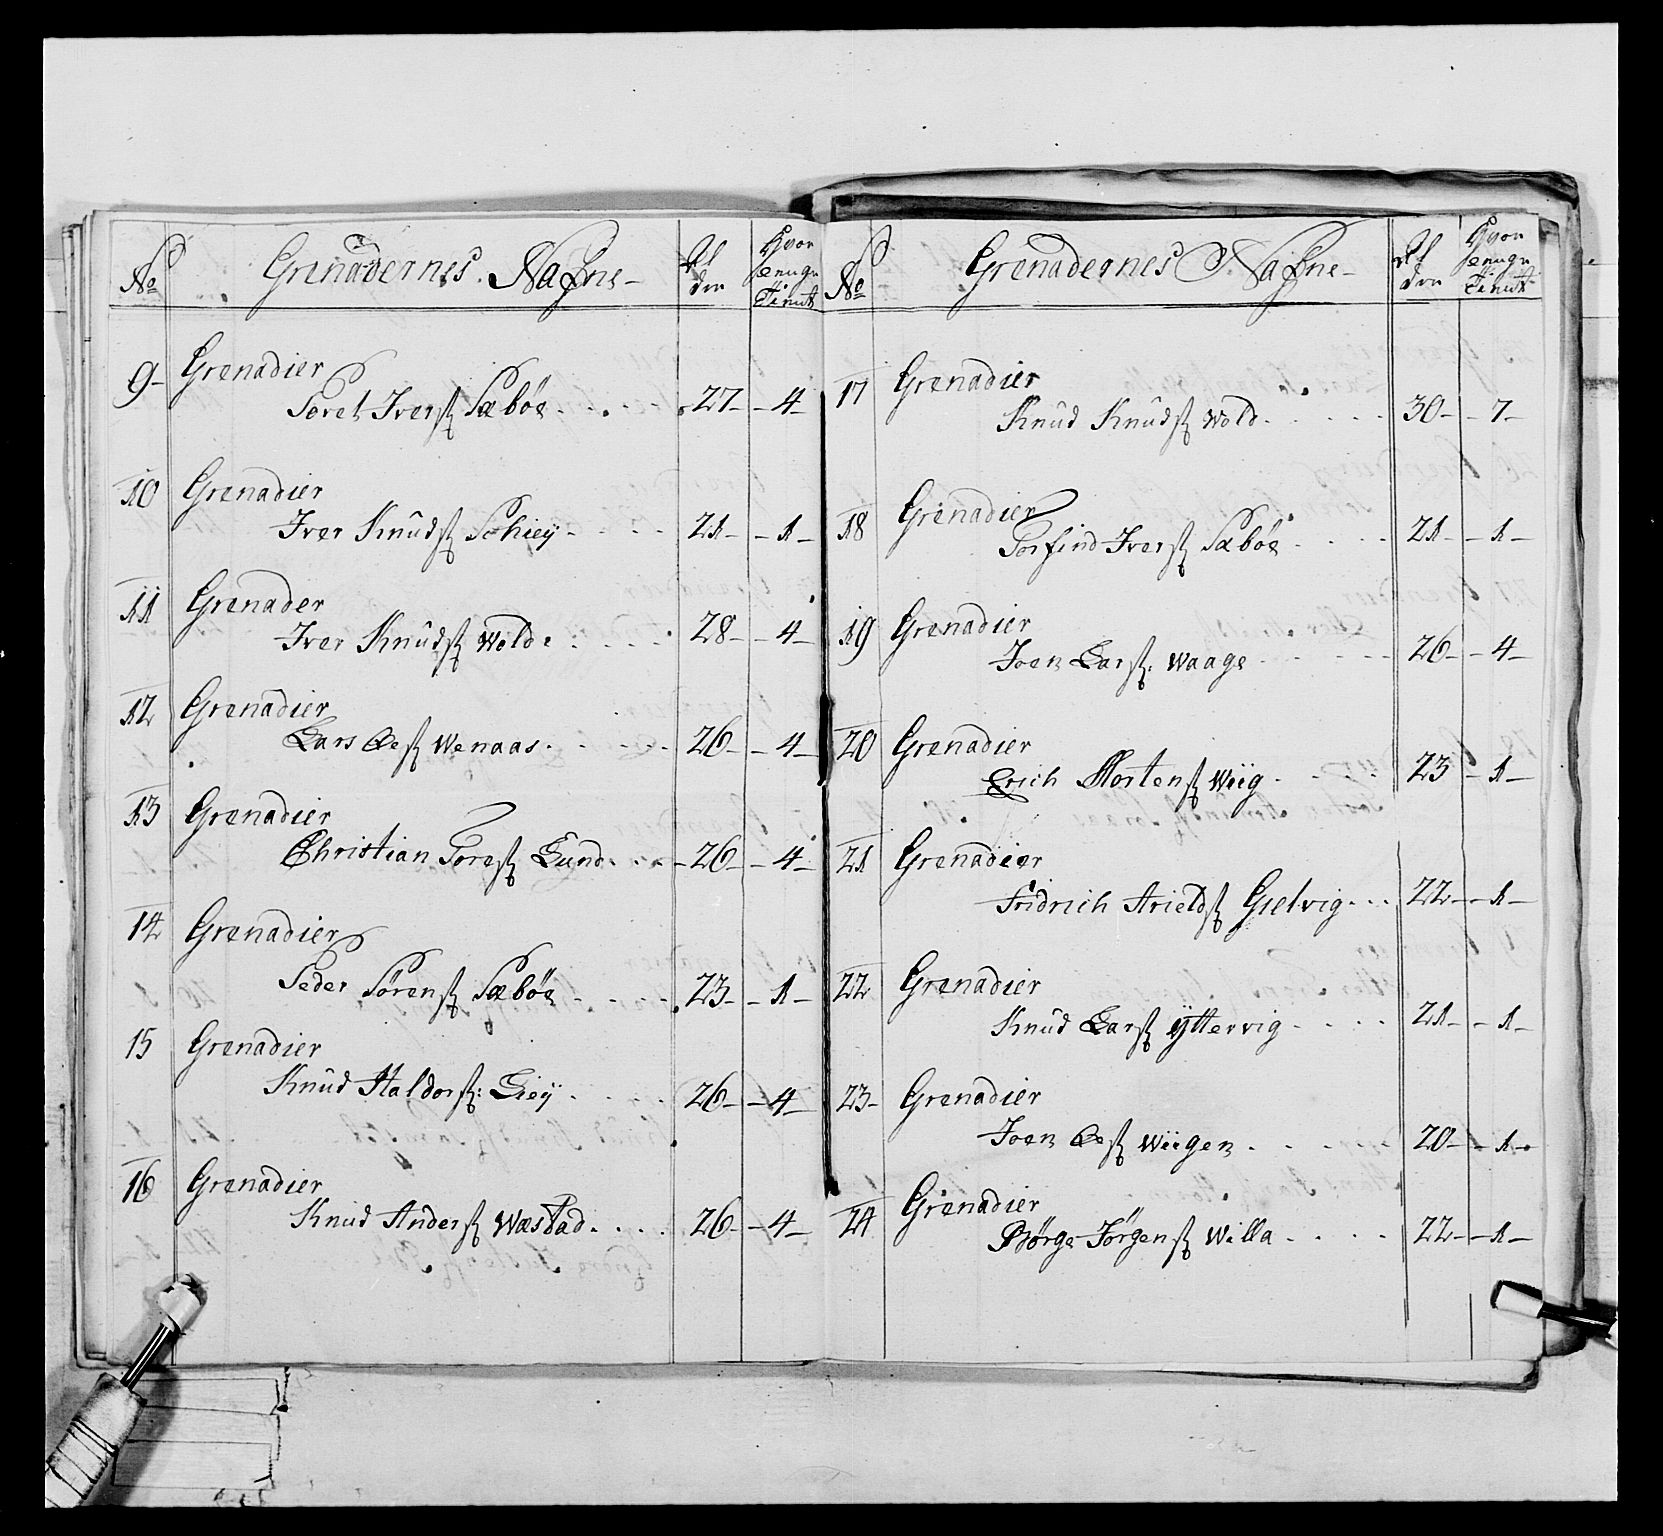 No Grenadernes Nafne Al Hvor
der længe
Tient
9 Grenadier
Toret Iverss Sæbøe 27 4
10 Grenadier
Iver Knûdss Schiey 21 1
11 Grenader
Iver Knûdss Wold 28 4
12 Grenadier
Lars Oess Wenaas 26 4
13 Grenadier
Christian Toress Lund 26 4
14 Grenadier
Peder Sørenss Sæbøe 23 1
15 Grenadier
Knûd Haldorss: Liey 26 4
16 Grenadier
Knud Anderss Wæstad 26 4
No Grenadernes Nafne Al Hvor
der længe
Tient
17 Grenadier
Knûd Knûdss Wold 30 7
18 Grenadier
Torfind Iverss Sæbøe 21 1
19 Grenadier
Joen Larss: Waage 26 4
20 Grenadier
Erich Mortenss Wiig 23 1
21 Grenadier
Fridrich Arieldss Gielvig 22 1
22 Grenadier
Knûd Larss Ÿttervig 21 1
23 Grenadier
Joen Oess Wiigen 20 1
24 Grenadier
Børge Jørgenss Willa 22 1